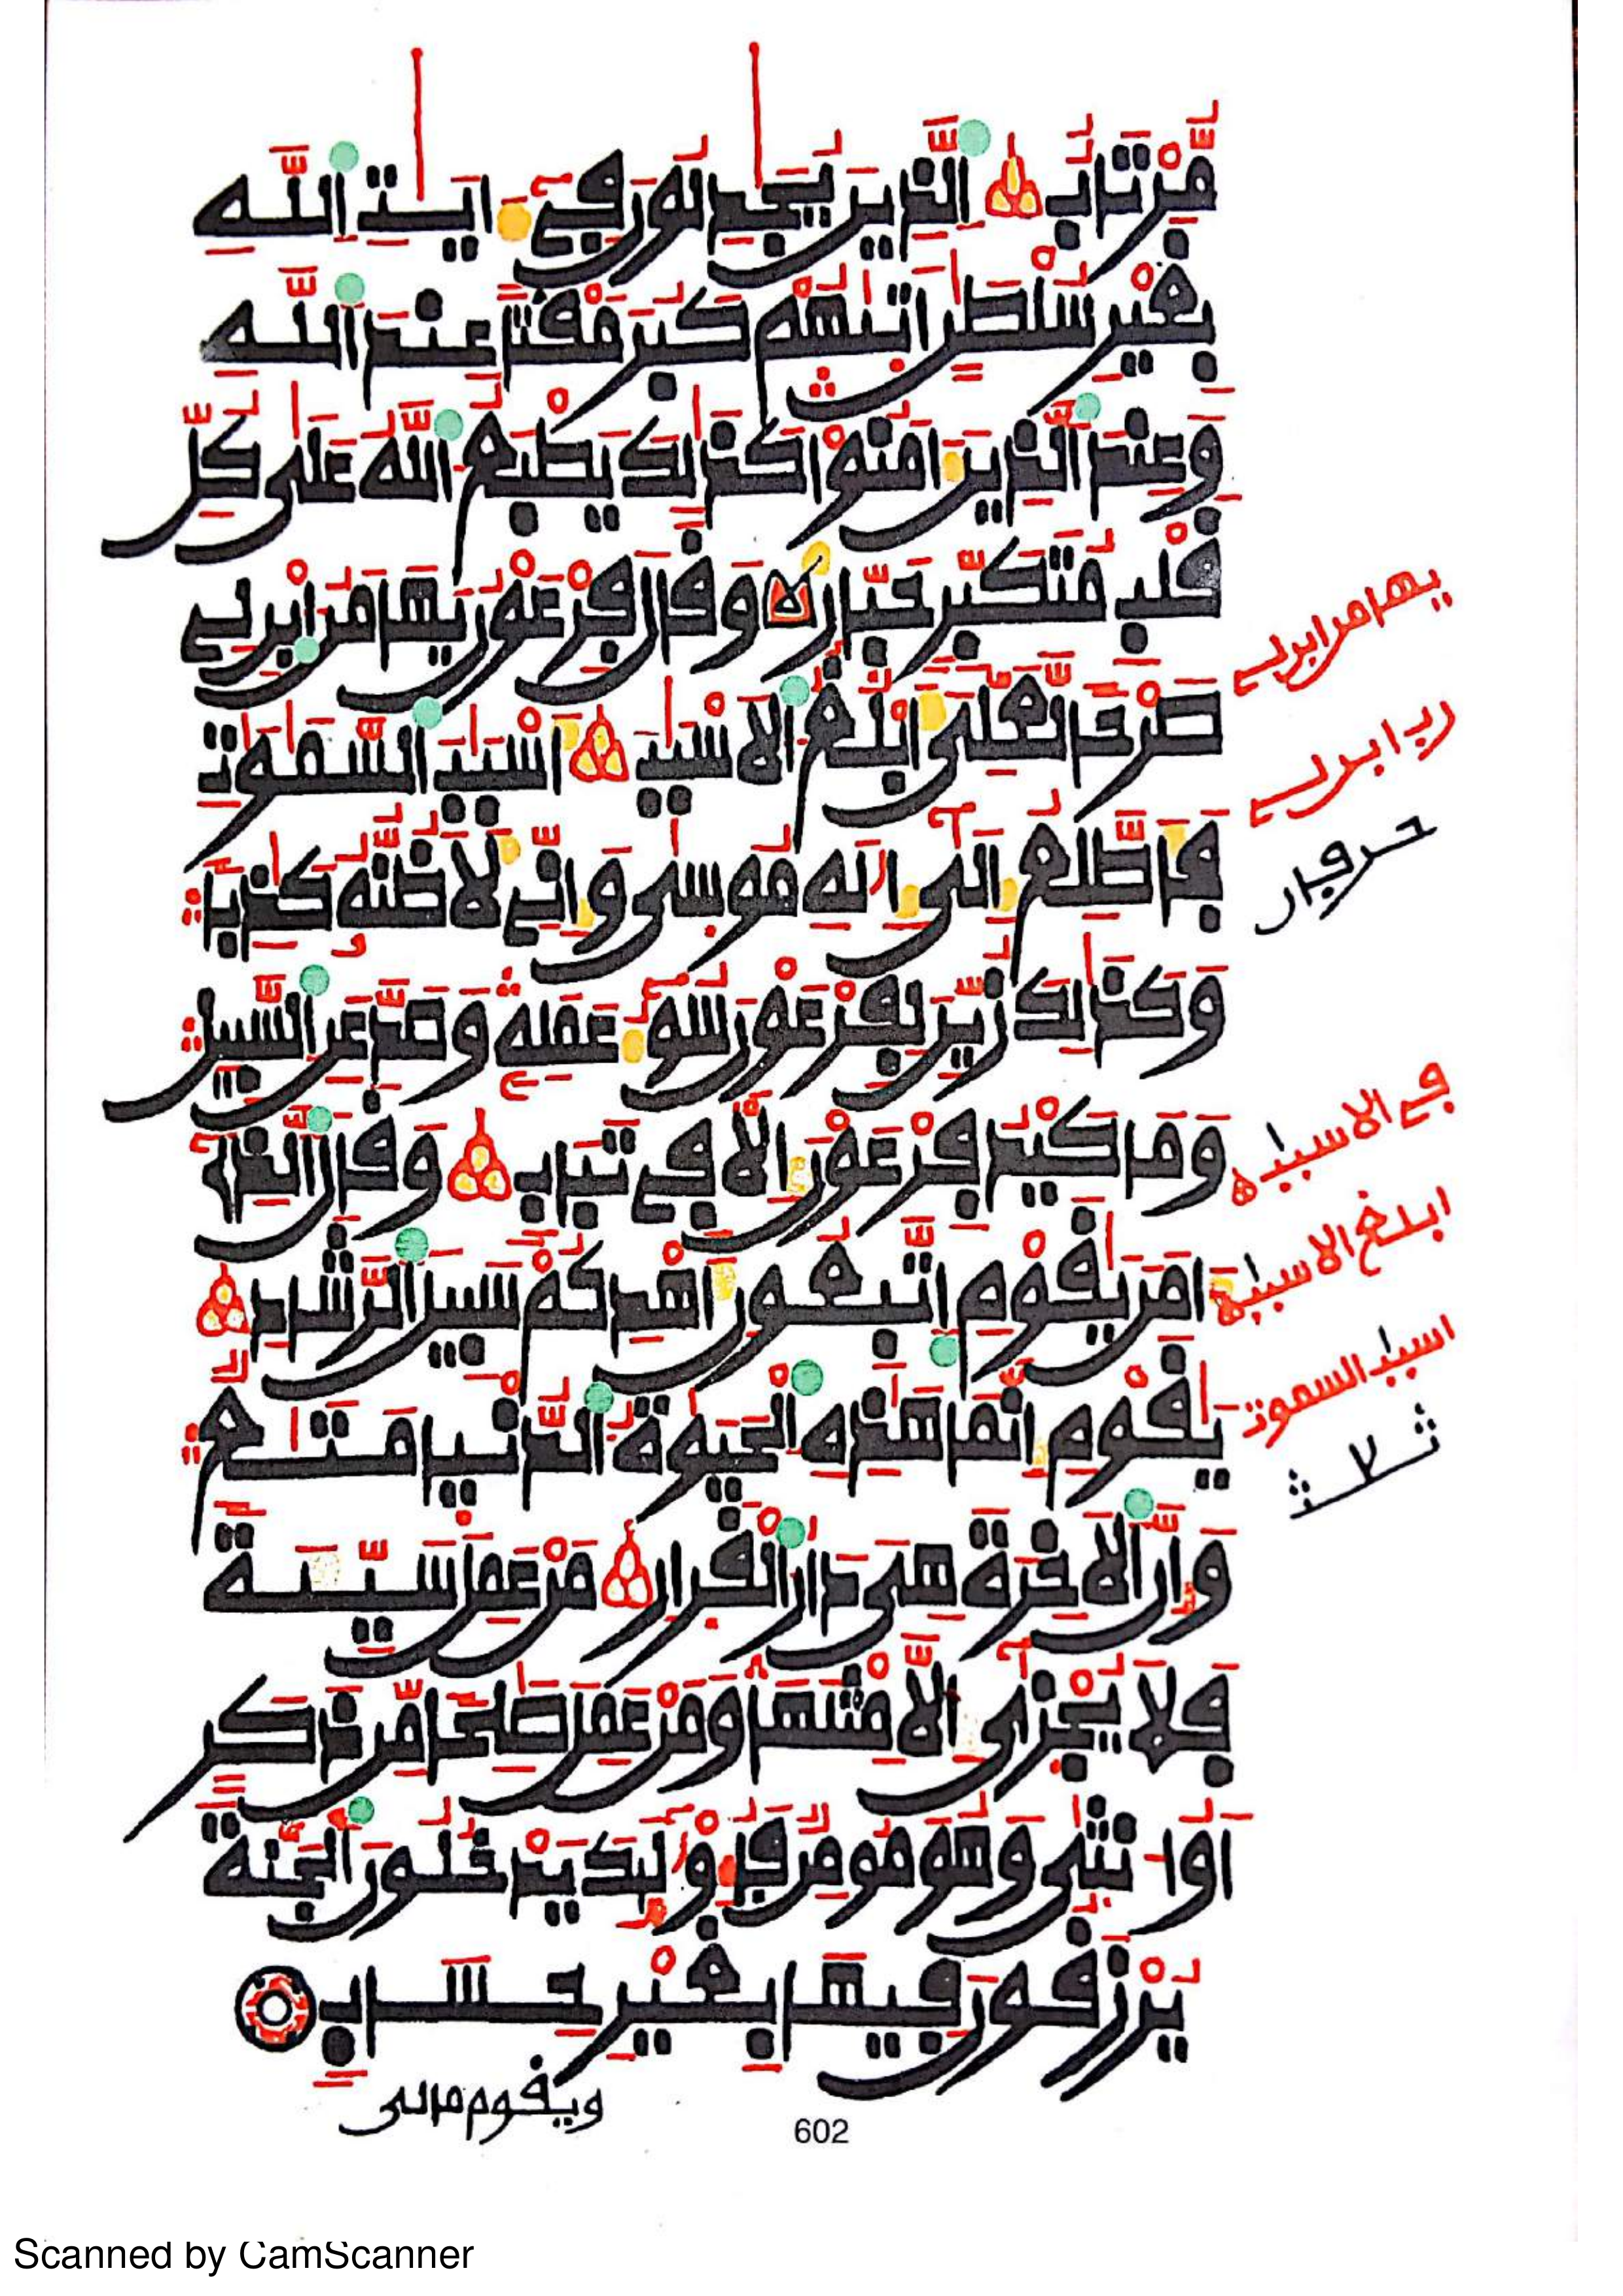 مُّرْتَابٌ الَّذِينَ يُجَدِلُونَ فِے ءَايَتِ اللَّهِ
بِغَيْرِ سُلْطَنٍ اَتَيهُمْ كَبُرَ مَقْتاً عِندَ اللَّهِ
وَعِندَ الَّذِينَ ءَامَنُواْ كَذَالِكَ يَطْبَعُ اللَّهُ عَلَى كُلِّ
قَلْبِ مُتَكَبِّرٍ جَبَّارٍ وَقَالَ فِرْعَوْنُ يَهَامَنُ اَبْنِ لِے
صَرْحاً لَّعَلِّىَ أَبْلُغُ الاَسْبَابَ أَسْبَابَ السَّمَاوَاتِ
فَأَطَّلِعُ إِلَى إِلَهِ مُوسَى وَإِنِّے لَأَظُنُّهُ كَاذِباً
وَكَذَالِكَ زُيِّنَ لِفِرْعَوْنَ سُوءُ عَمَلِهِ وَصَدَّ عَنِ السَّبِيلِ
وَمَا كَيْدُ فِرْعَوْنَ إِلاَّ فِے تَبَابٍ وَقَالَ الَّذِے
ءَامَنَ يَاقَوْمِ اِتَّبِعُونِ أَهْدِكُمْ سَبِيلَ الرَّشَادِ
يَاقَوْمِ إِنَّمَا هَذِهِ الْحَيَوةُ الدُّنْيَا مَتَاعٌ
وَإِنَّ الاَخِرَةَ هِىَ دَارُ الْقَرَارِ مَنْ عَمِلَ سَيِّئَةً
فَلاَ يُجْزَى إِلاَّ مِثْلَهَا وَمَنْ عَمِلَ صَلِحاً مِّن ذَكَرٍ
اَوُ انثَى وَهُوَ مُومِنٌ فَأُوْلَئِكَ يَدْخُلُونَ الْجَنَّةَ
يُرْزَقُونَ فِيهَا بِغَيْرِ حِسَابٍ
ويقوم مالى
يهامن ابن لے
ربنا ابن لے
حرفان
فے الاسباب
ابلغ الاسباب
اسباب السموت
ثلاث
602
Scanned by CamScanner